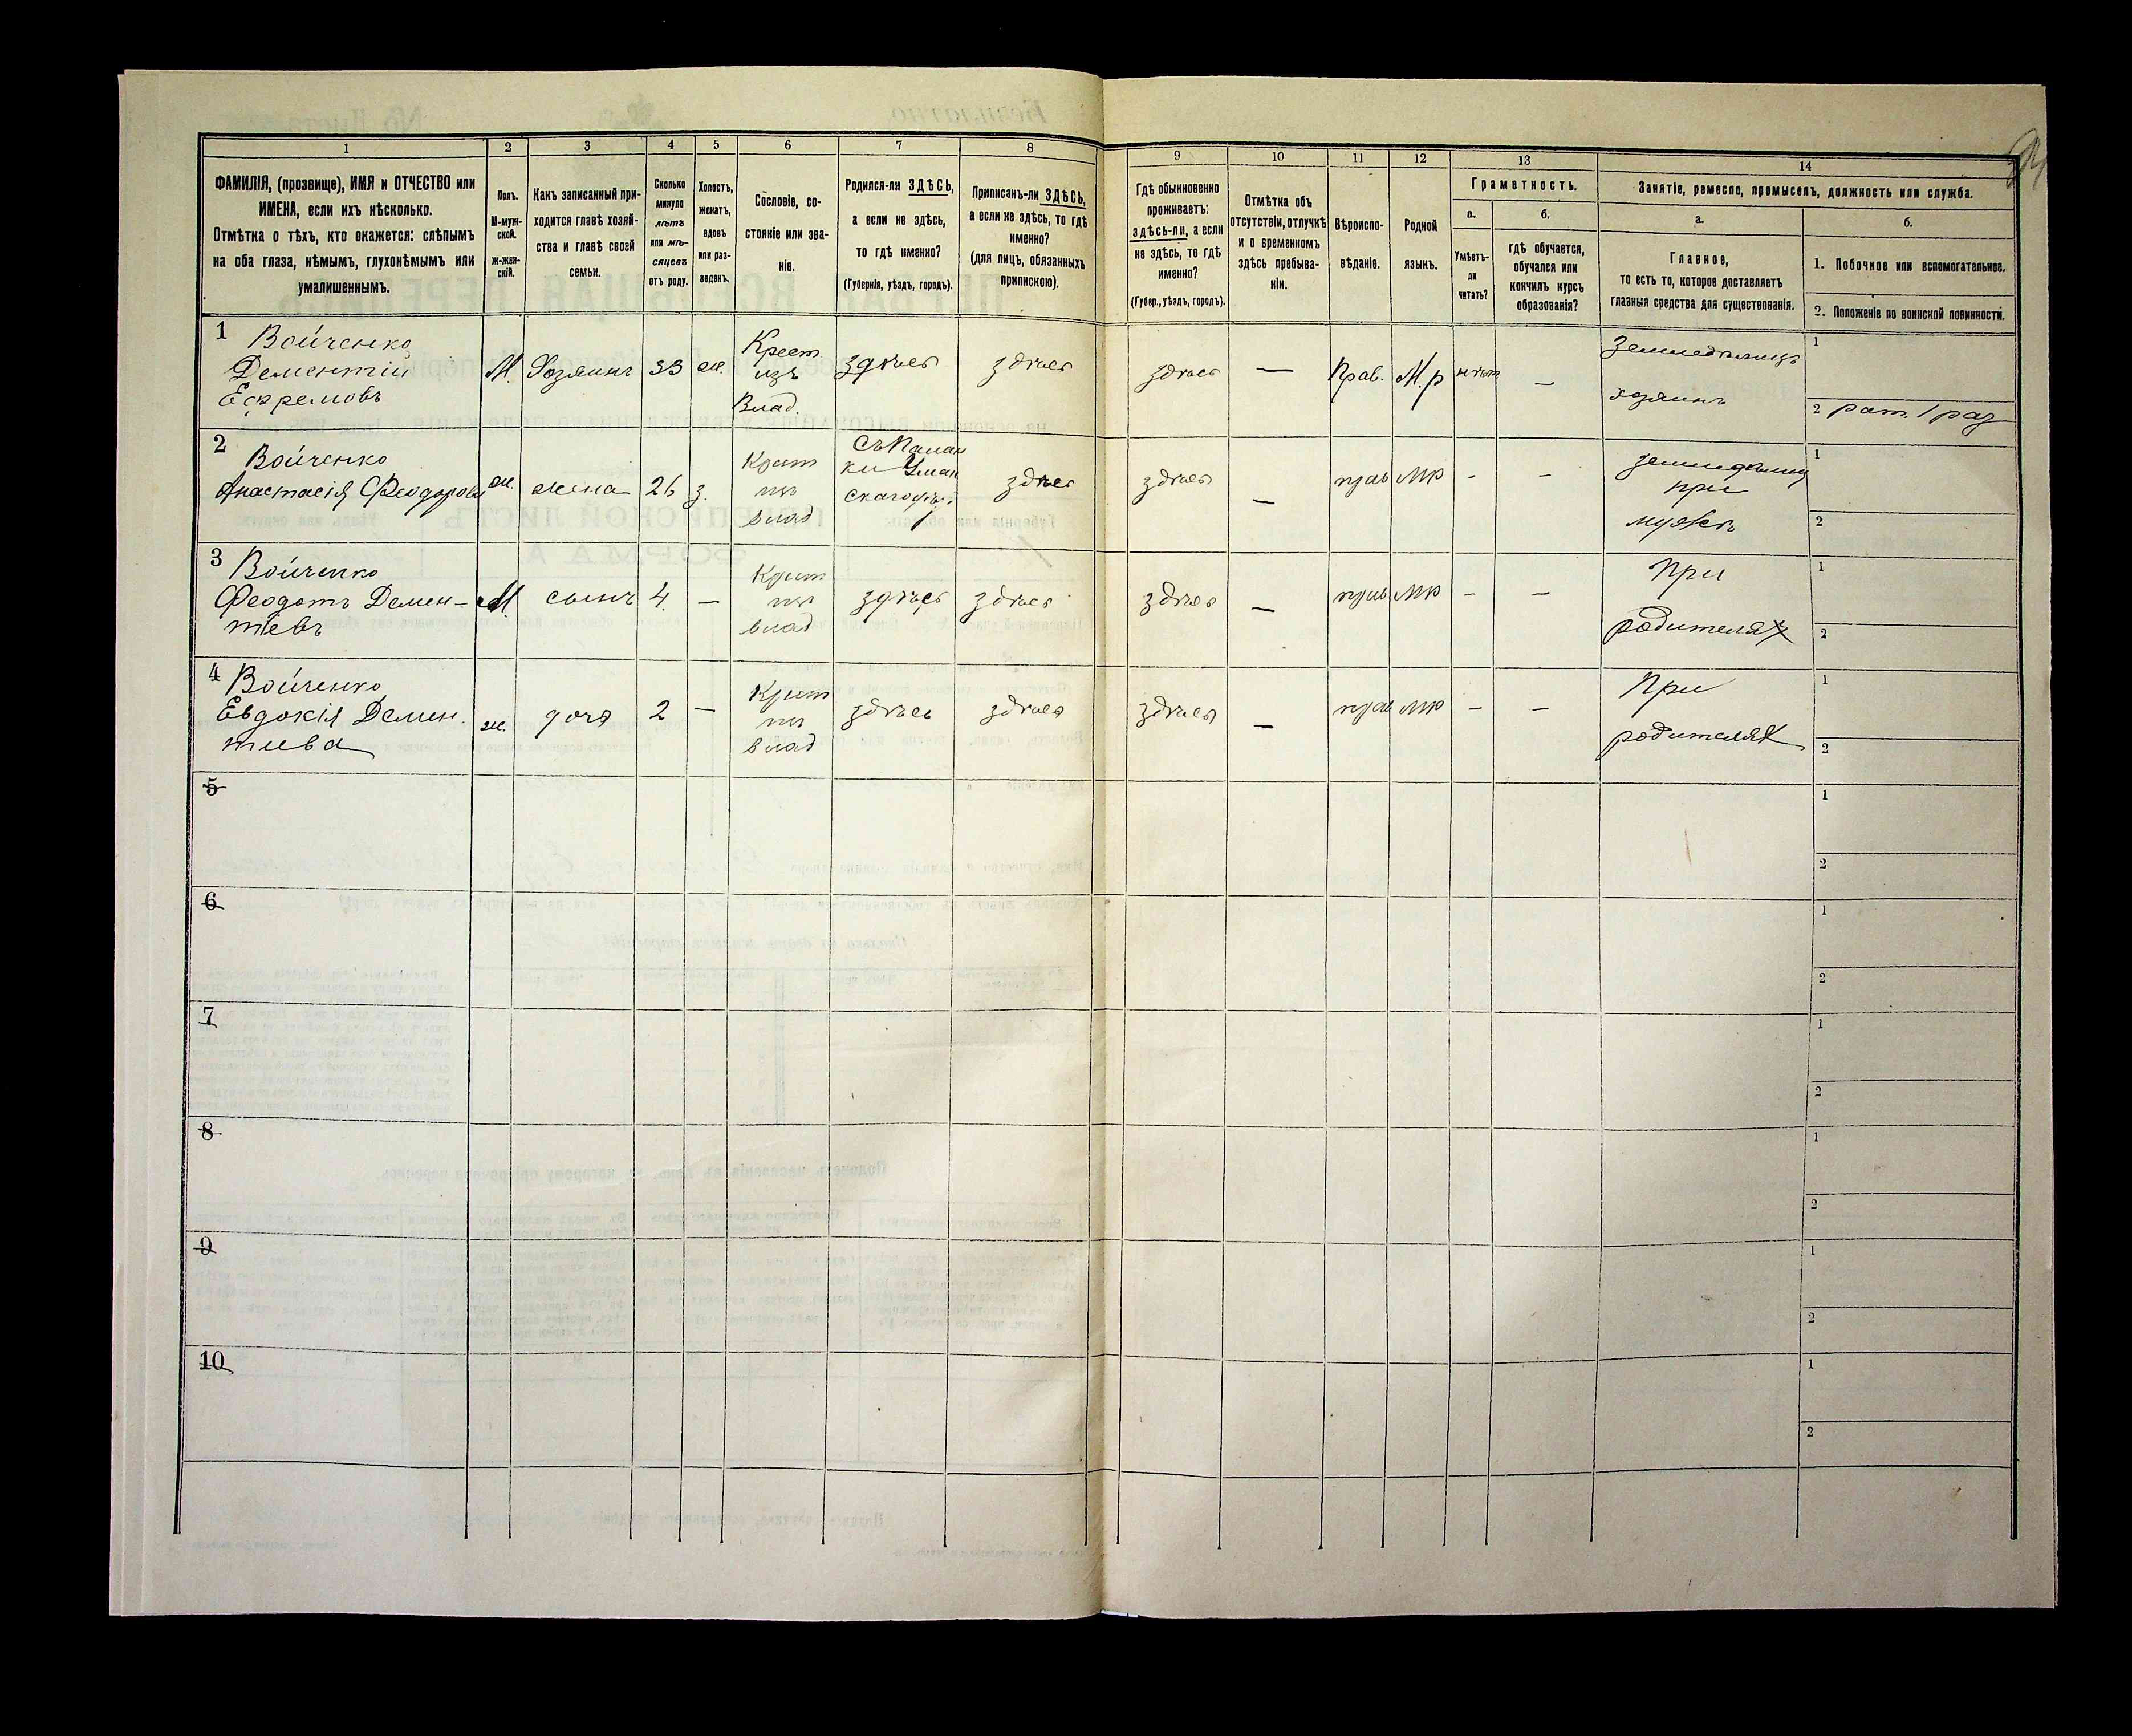 1
2
3
4
5
6
7
8
9
10
11
12
13
14
ФАМИЛІЯ, (прозвище), ИМЯ и ОТЧЕСТВО или
ИМЕНА, если ихъ нѣсколько.
Отмѣтка о тѣхъ, кто окажется: слѣпымъ
на оба глаза, нѣмымъ, глухонѣмымъ или
умалишеннымъ.
Полъ.
М-муж-
ской.
ж-жен-
скій.
Какъ записанный при-
ходится главѣ хозяй-
ства и главѣ своей
семьи.
Сколько
минуло
лѣтъ
или мѣ-
сяцевъ
отъ роду.
Холостъ,
женатъ,
вдовъ
или раз-
веденъ.
Сословіе, со-
стояніе или зва-
ніе.
Родился-ли ЗДѢСЬ,
а если не здѣсь,
то гдѣ именно?
(Губернія, уѣздъ, городъ).
Приписанъ-ли ЗДѢСЬ,
а если не здѣсь, то гдѣ
именно?
(для лицъ, обязанныхъ
припискою).
Гдѣ обыкновенно
проживаетъ:
здѣсь-ли, а если
не здѣсь, то гдѣ
именно?
(Губер., уѣздъ, городъ).
Отмѣтка объ
отсутствіи, отлучкѣ
и о временномъ
здѣсь пребыва-
ніи.
Вѣроиспо-
вѣданіе.
Родной
языкъ.
Грамотность.
а.
Умѣетъ-
ли
читать?
б.
гдѣ обучается,
обучался или
кончилъ курсъ
образованія?
Занятіе, ремесло, промыселъ, должность или служба.
а.
Главное,
то есть то, которое доставляетъ
главныя средства для существованія.
б.
1. Побочное или вспомогательное.
2. Положеніе по воинской повинности.
1
Войченко
Дементій
Ефремовъ
М.
Хозяинъ
33
ж.
Крест
изъ
Влад.
здѣсь
здѣсь
здѣсь
—
Прав.
М.р
нѣтъ
—
Земледѣлецъ
хозяинъ
1
2 рат. 1 раз
2
Войченко
Анастасія Феодорова
ж.
жена
26
з.
Крест
изъ
влад
здѣсь
здѣсь
—
прав
мр
-
-
при
мужѣ
1
2
3
Войченко
Феодотъ Демен-
тіевъ
М
сынъ
4.
—
Крест
изъ
влад
здѣсь
здѣсь
здѣсь
—
прав
мр
-
-
При
родителях
1
2
4
Войченко
Евдокія Демен.
тиева
ж.
дочь
2
—
Крест
изъ
влад
здѣсь
здѣсь
здѣсь
—
прав
мр
-
-
При
родителях
1
2
5
1
2
6
1
2
7
1
2
8
1
2
9
1
2
10
1
2